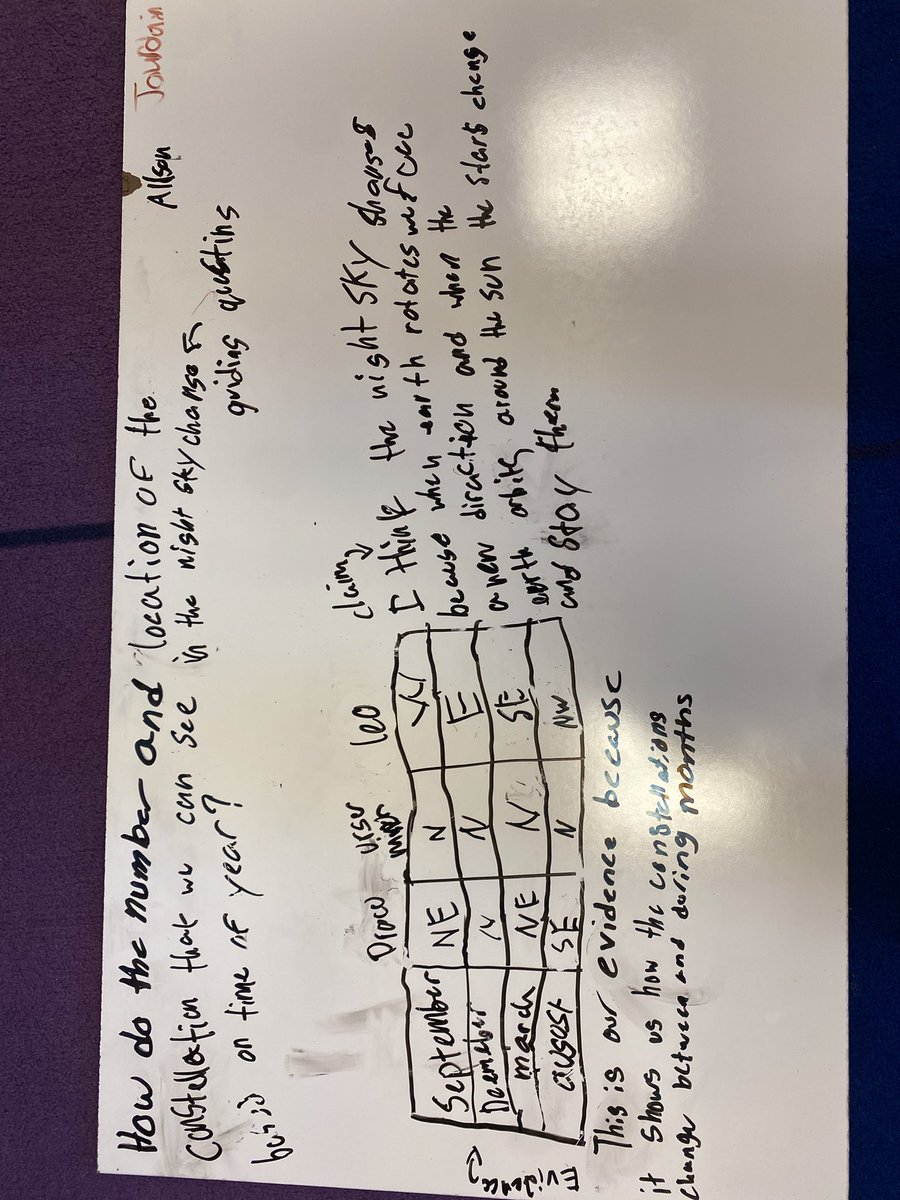 Jourdain
Allison
How do the number and location of the
constellation that we can see in the night sky change
on time of year?
guiding questins
Draco
ursu
minor
leo
September NE N W
Decmeber N N E
march NE N SE
august SE N NW
Evidence
claim
I think the night sky changes
because when earth rotates we face
a new direction and when the
earth orbits around the sun the stars change
and stay them
This is our evidence because
it shows us how the constellations
change between and during months